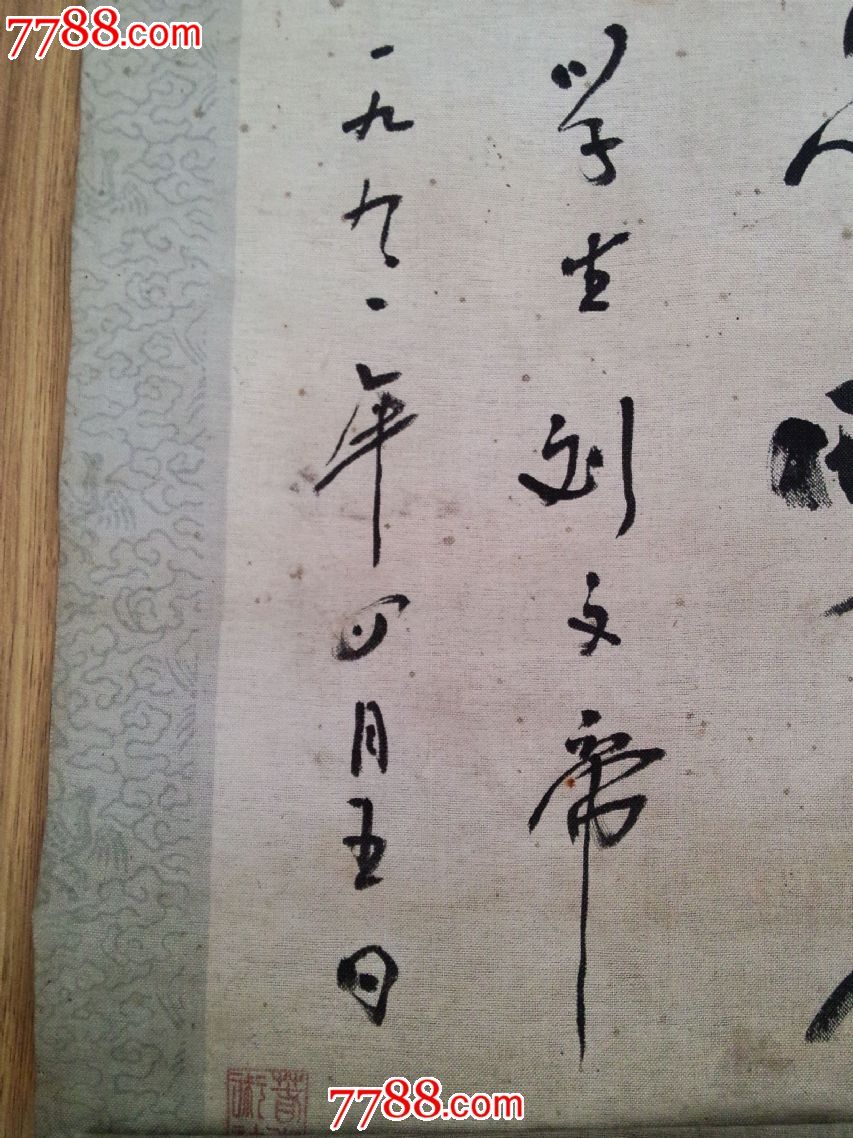 7788.com
学生 刘文帝
一九九一年四月五日
7788.com